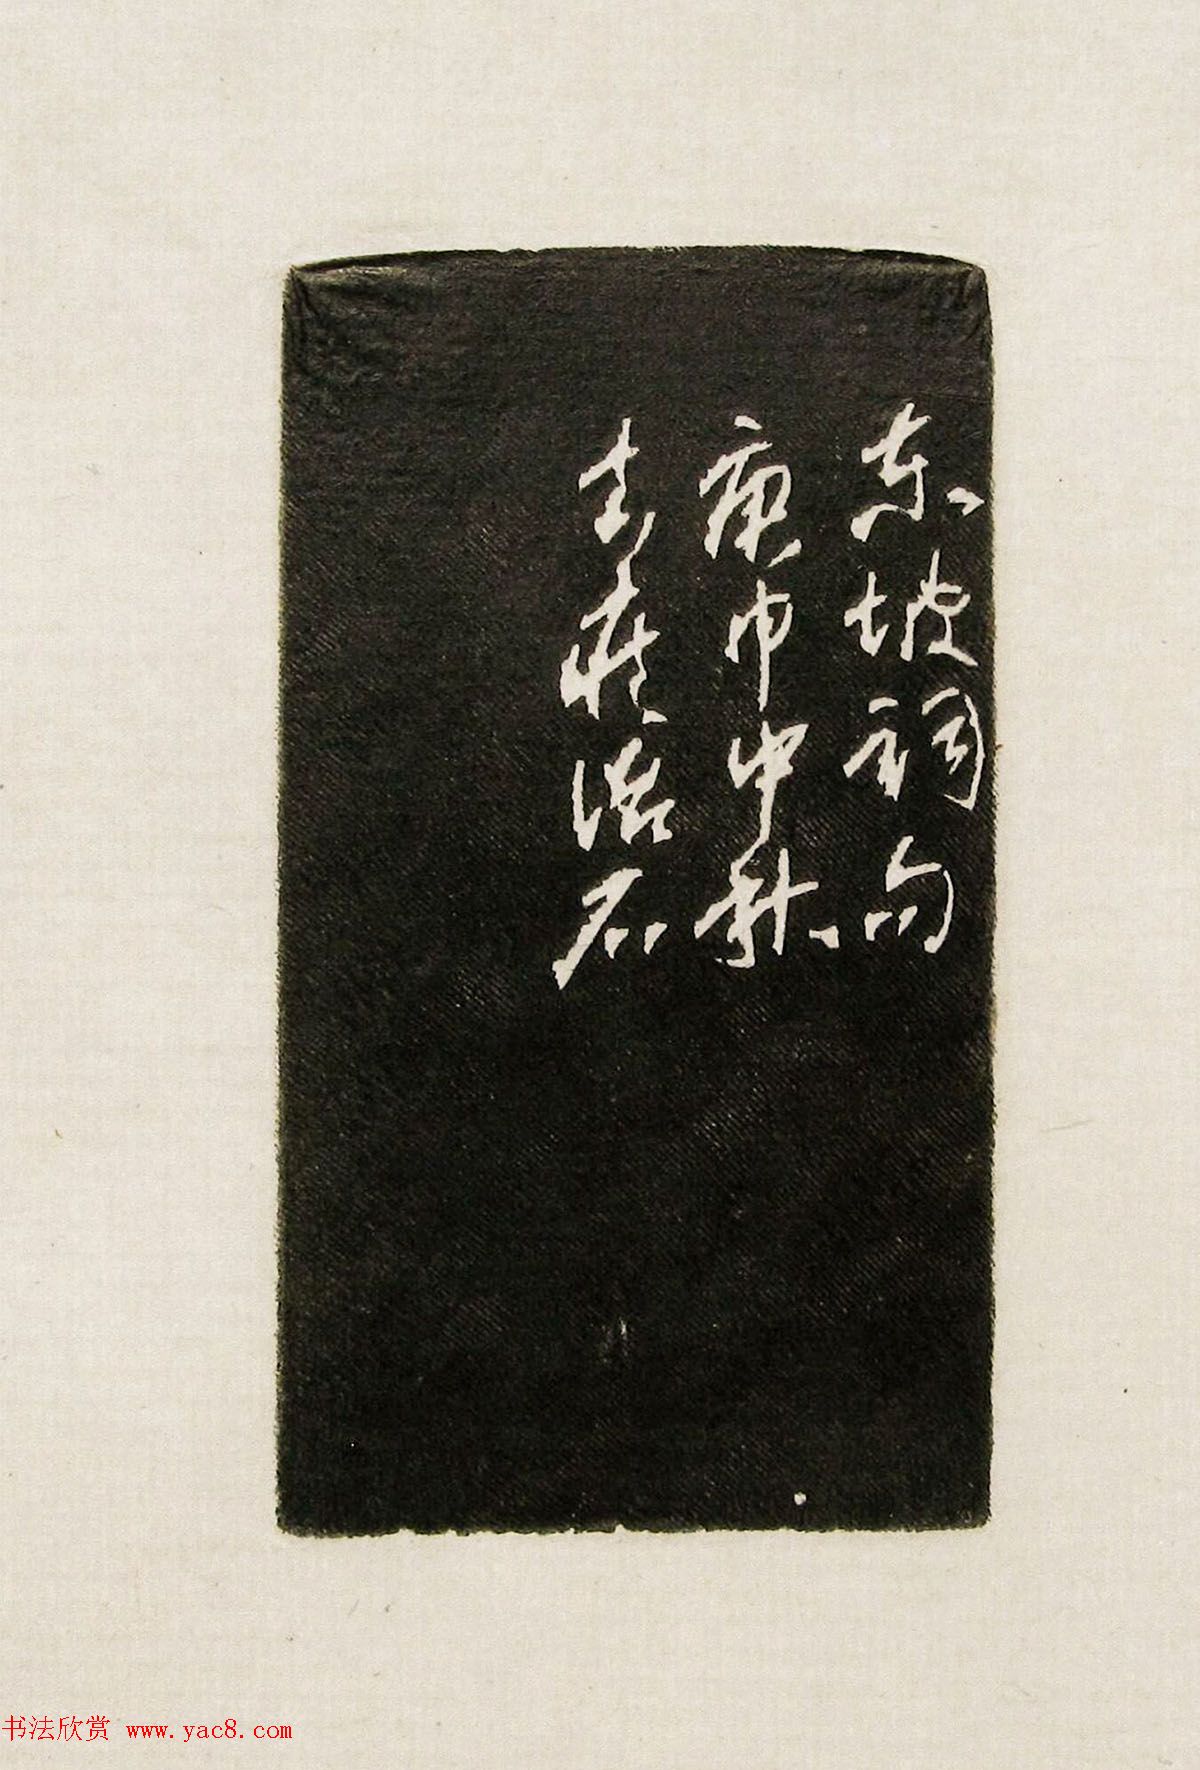 东坡词句
庚申中秋
去疾治石
书法欣赏 www.yac8.com